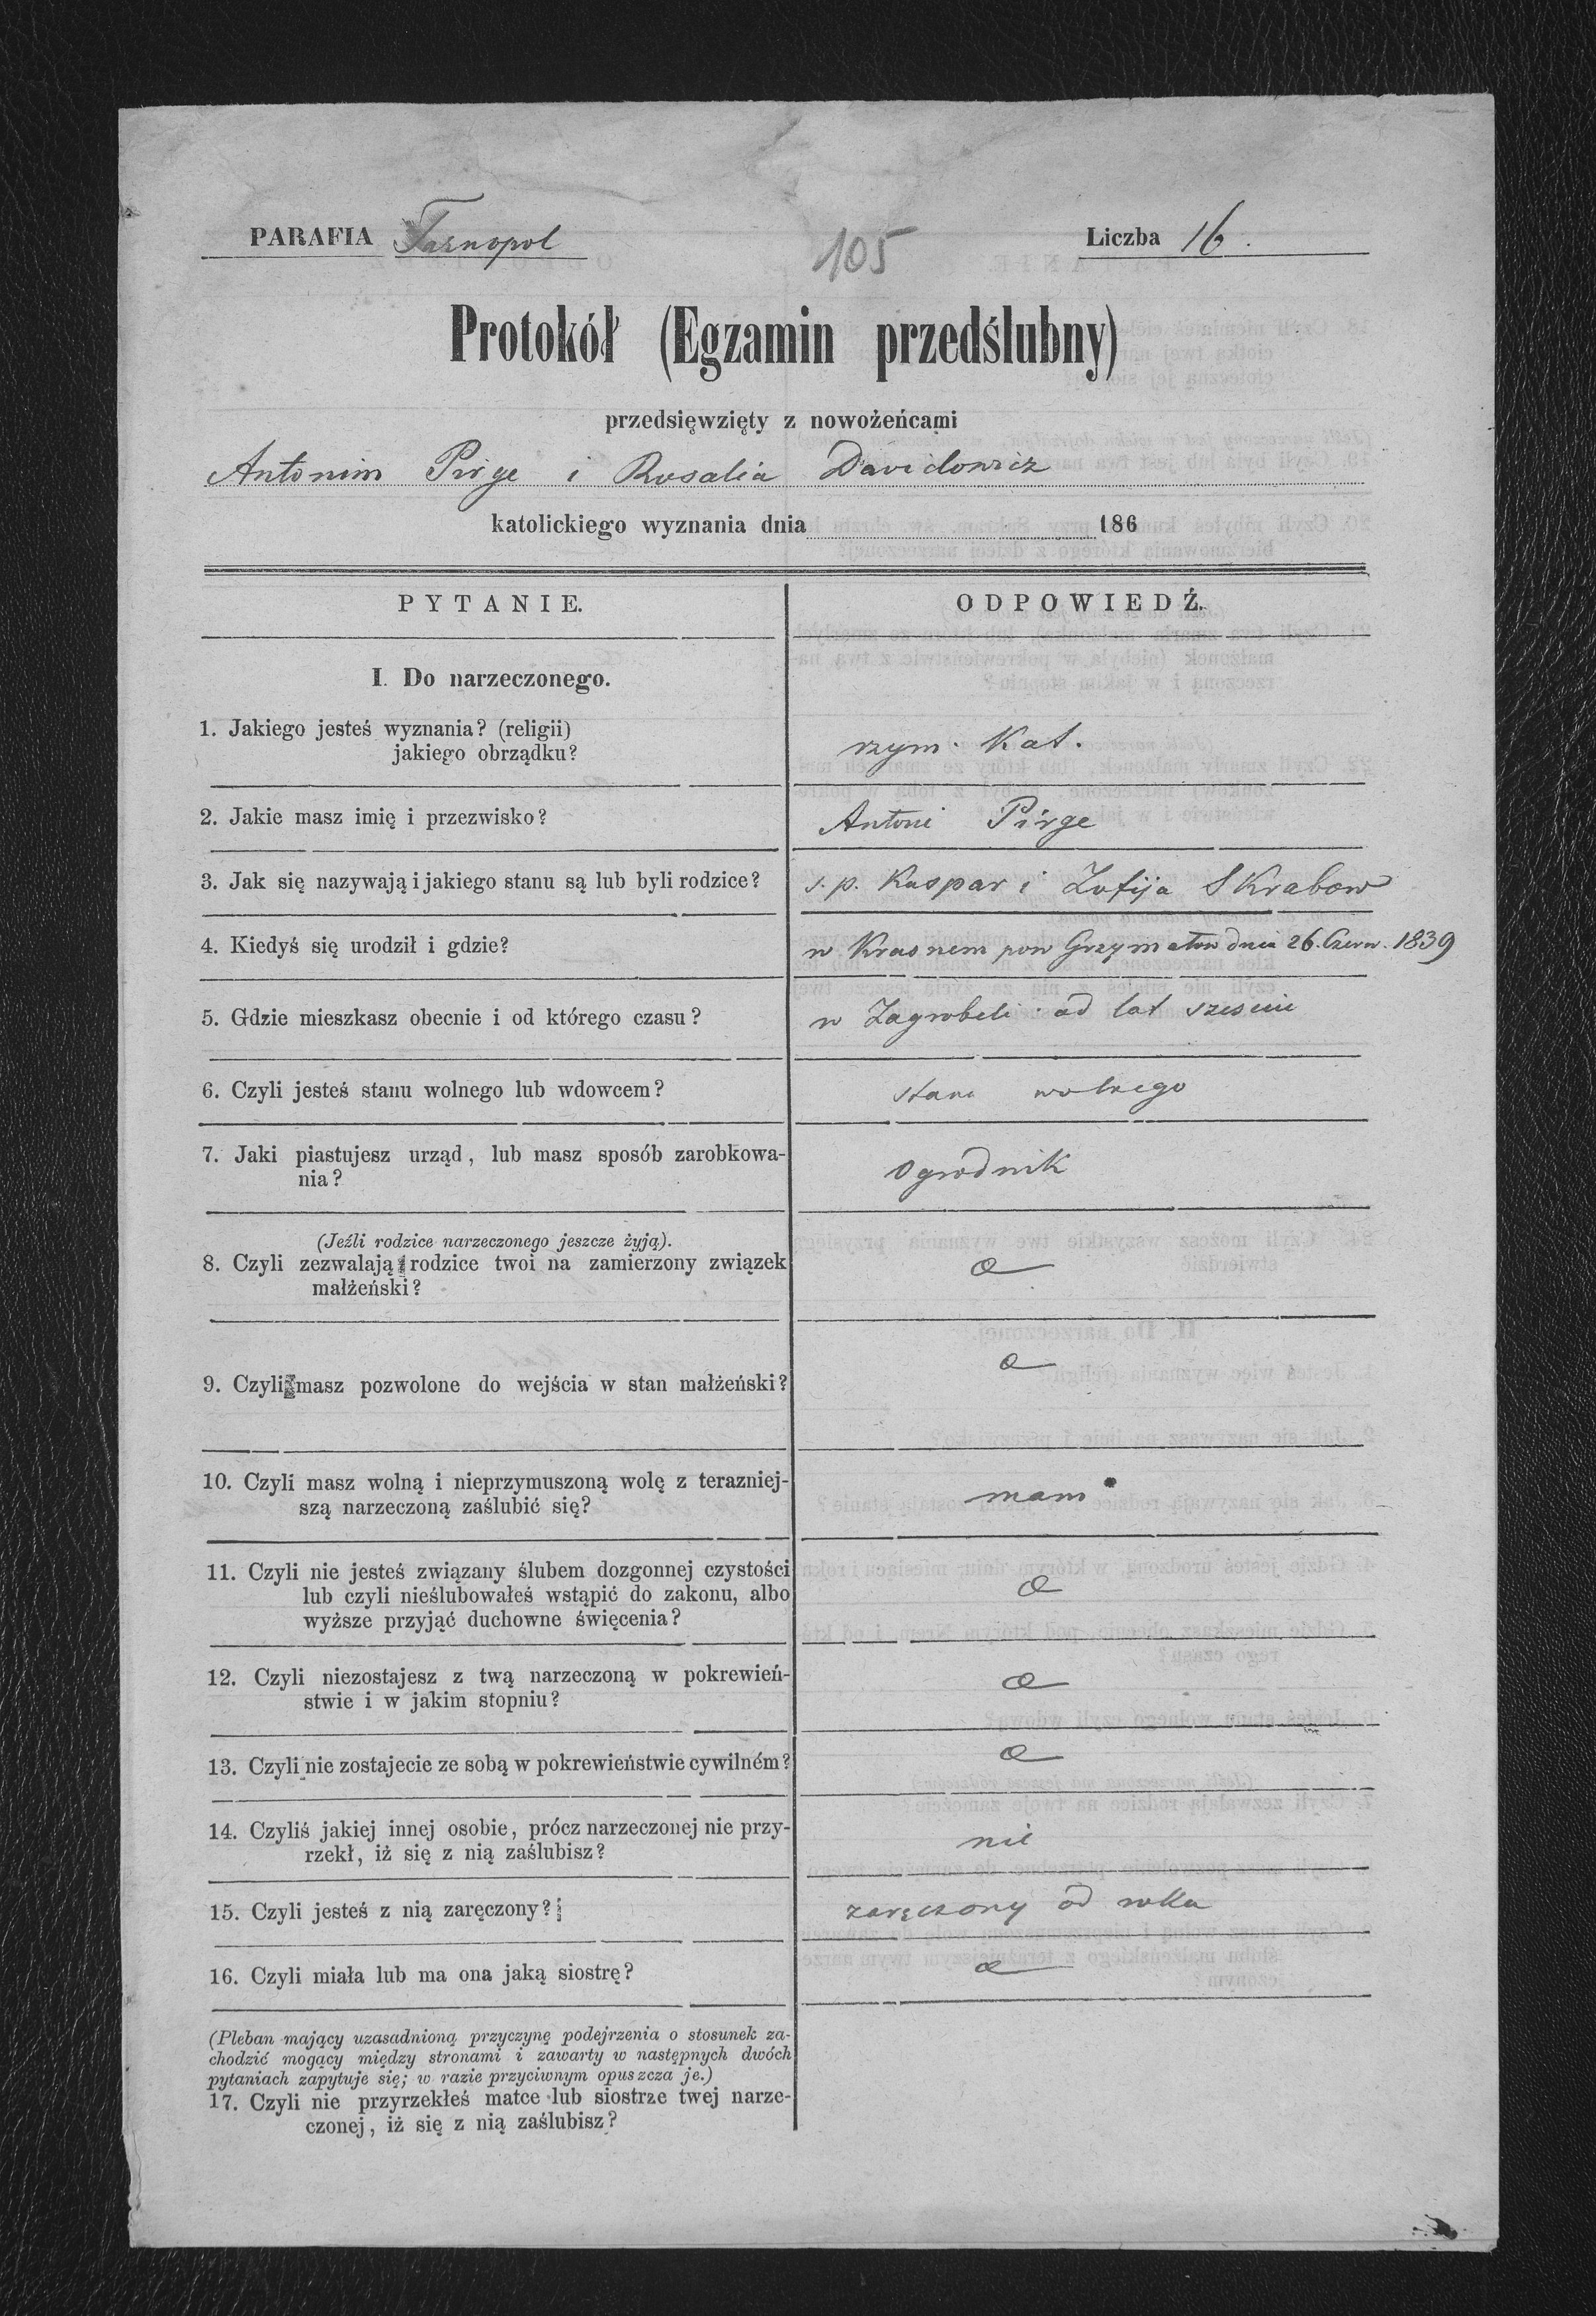 PARAFIA Tarnopol
105
Liczba 16.
Protokół (Egzamin przedślubny)
przedsięwzięty z nowożeńcami
Antonim Pirge i Rosalia Davidowicz
katolickiego wyznania dnia 186
PYTANIE.
ODPOWIEDŹ.
I. Do narzeczonego.
1. Jakiego jesteś wyznania? (religii)
jakiego obrządku?
rzym. Kat.
2. Jakie masz imię i przezwisko?
Antoni Pirge
3. Jak się nazywają i jakiego stanu są lub byli rodzice?
s. p. Kaspar i Zofija Skrabow
4. Kiedyś się urodził i gdzie?
w Krasnem pow Grzymałow dnia 26. Czerw. 1839
5. Gdzie mieszkasz obecnie i od którego czasu?
w Zagrobeli od lat szesciu
6. Czyli jesteś stanu wolnego lub wdowcem?
stanu wolnego
7. Jaki piastujesz urząd, lub masz sposób zarobkowa-
nia?
Ogrodnik
(Jeźli rodzice narzeczonego jeszcze żyją).
8. Czyli zezwalają rodzice twoi na zamierzony związek
małżeński?
9. Czyli masz pozwolone do wejścia w stan małżeński?
10. Czyli masz wolną i nieprzymuszoną wolę z terazniej-
szą narzeczoną zaślubić się?
mam
11. Czyli nie jesteś związany ślubem dozgonnej czystości
lub czyli nieślubowałeś wstąpić do zakonu, albo
wyższe przyjąć duchowne święcenia?
12. Czyli niezostajesz z twą narzeczoną w pokrewień-
stwie i w jakim stopniu?
13. Czyli nie zostajecie ze sobą w pokrewieństwie cywilném?
14. Czyliś jakiej innej osobie, prócz narzeczonej nie przy-
rzekł, iż się z nią zaślubisz?
nie
15. Czyli jesteś z nią zaręczony?
zaręczony od roku
16. Czyli miała lub ma ona jaką siostrę?
(Pleban mający uzasadnioną przyczynę podejrzenia o stosunek za-
chodzić mogący między stronami i zawarty w następnych dwóch
pytaniach zapytuje się; w razie przyciwnym opuszcza je.)
17. Czyli nie przyrzekłeś matce lub siostrze twej narze-
czonej, iż się z nią zaślubisz?